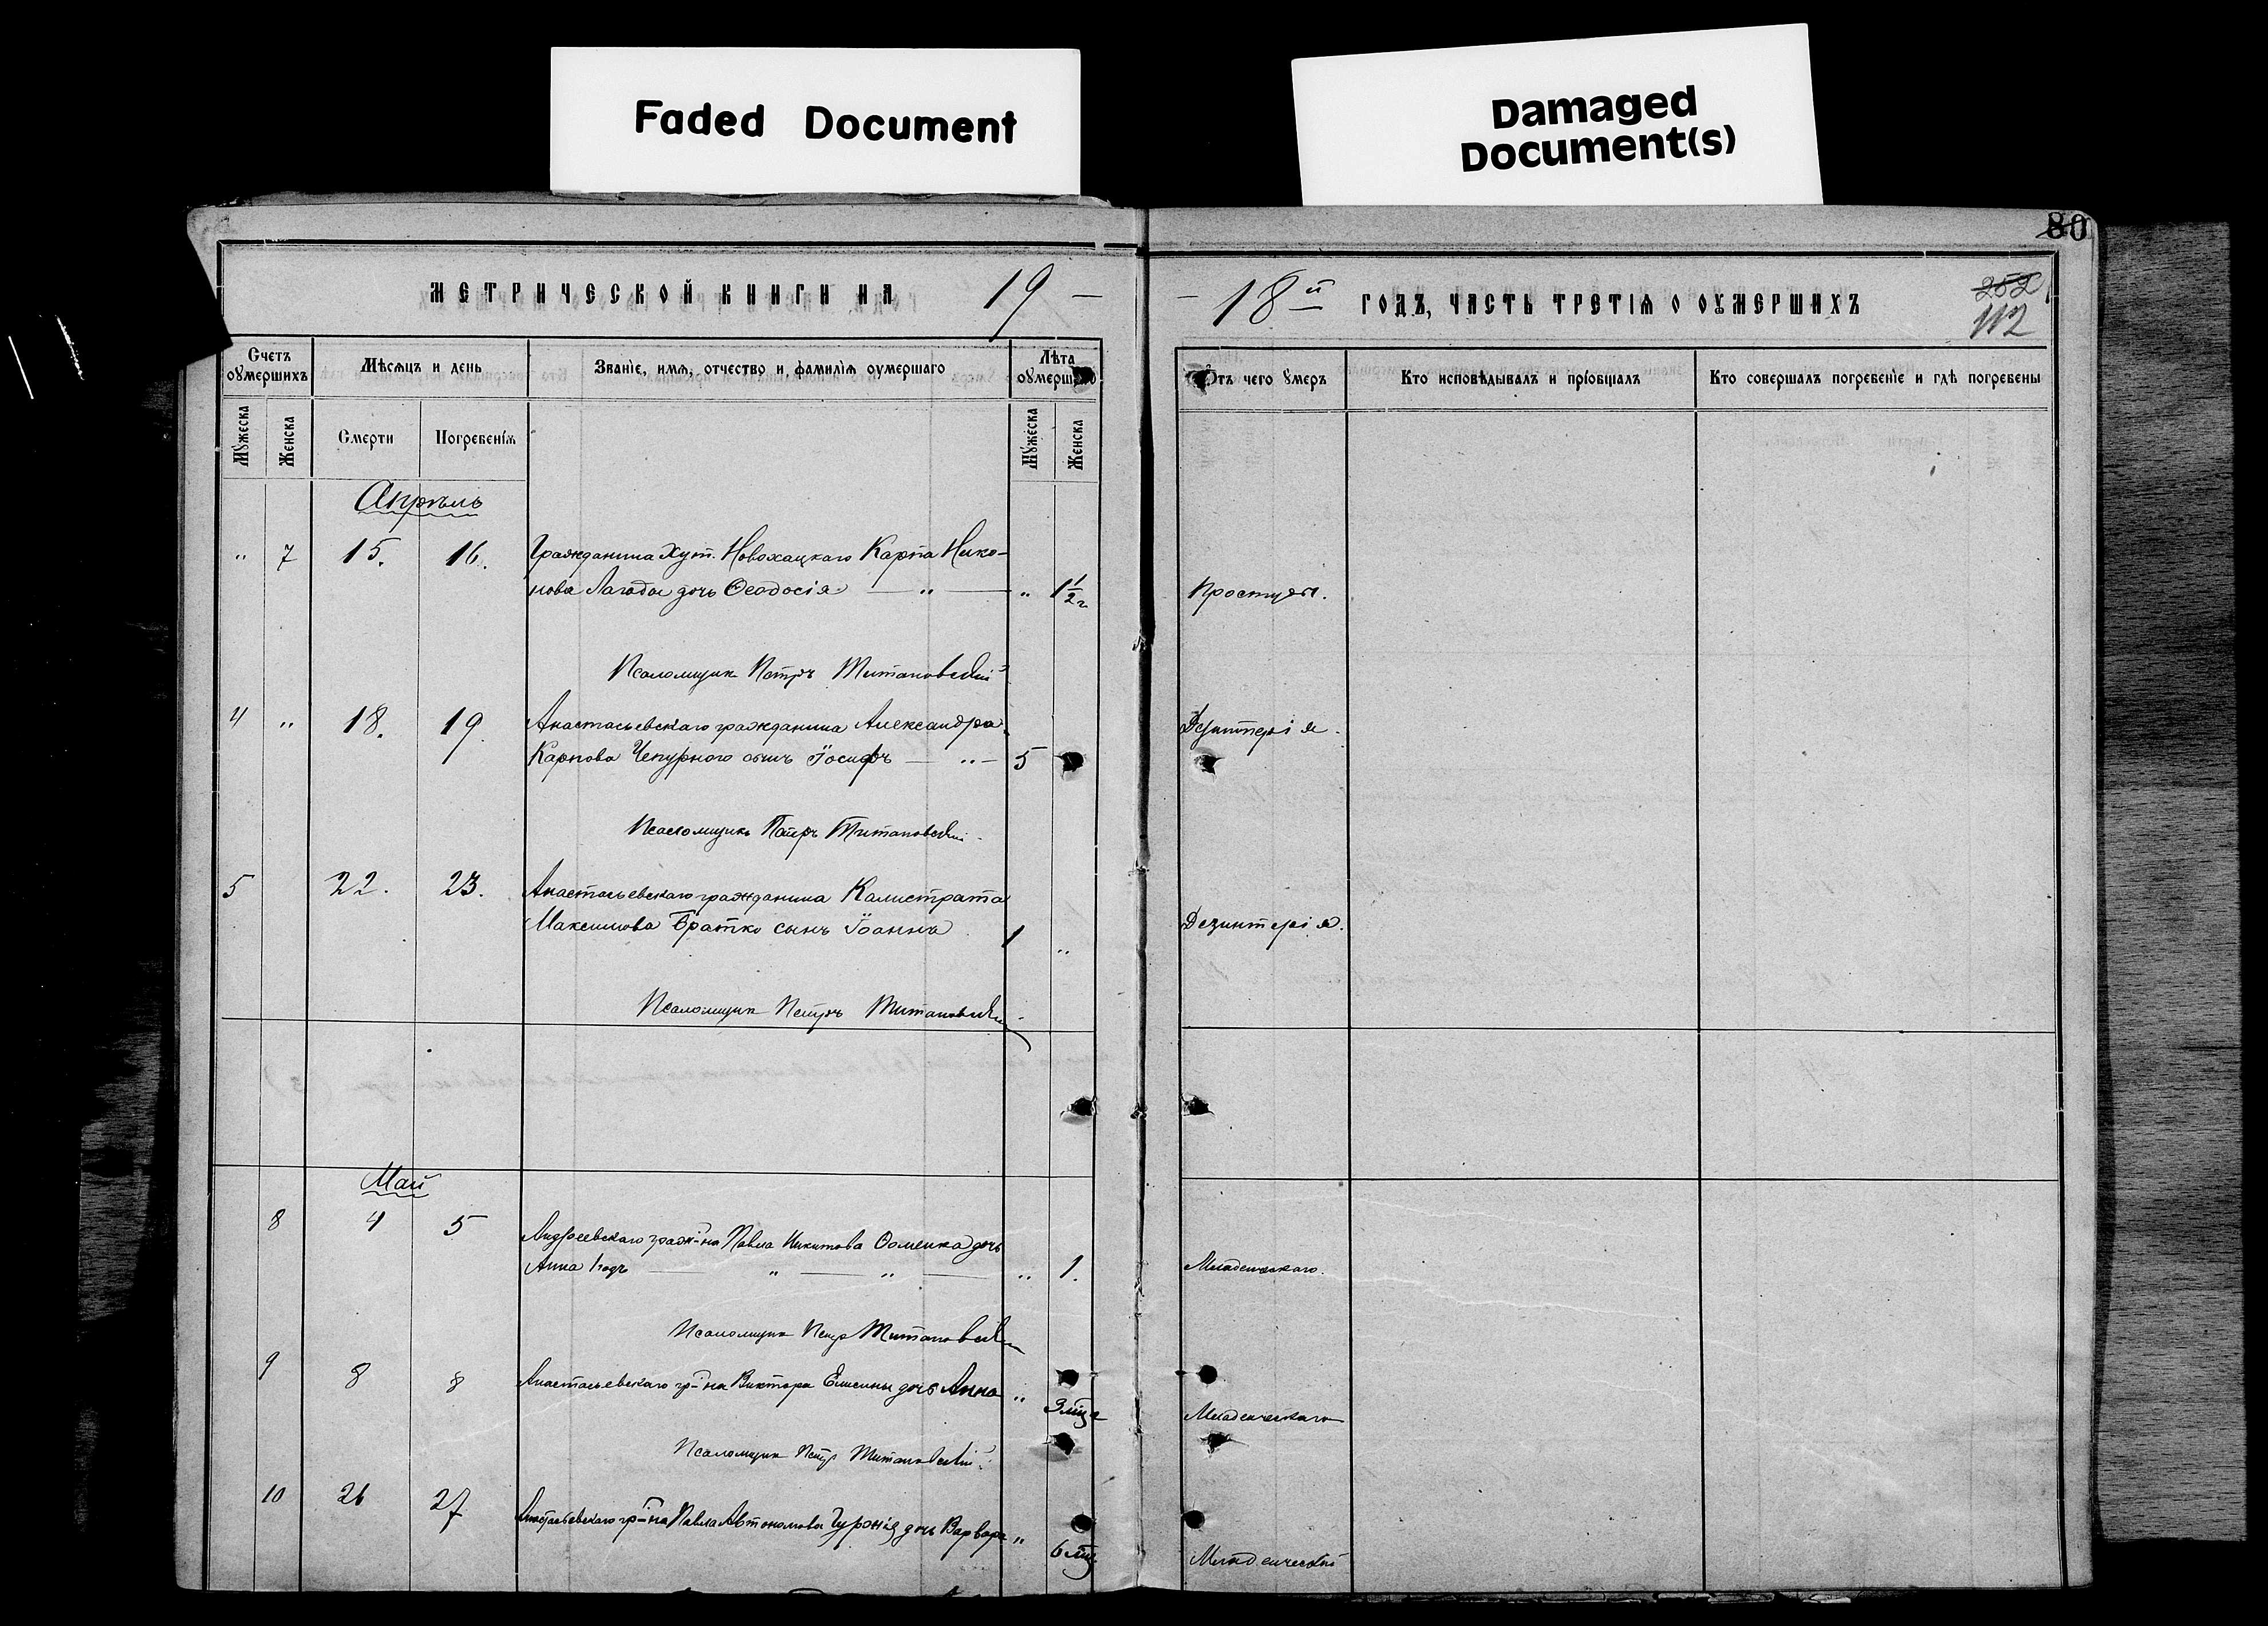 Faded Document
Damaged
Document(s)
80
МЕТРИЧЕСКОЙ КНИГИ НА 19 —
— 18й ГОДЪ, ЧАСТЬ ТРЕТІѦ О ОУМЕРШИХЪ
252
112
Счетъ оумершихъ
Мѣсѧцъ и день
Званіе, имѧ, отчество и фамиліѧ оумершаго
Лѣта
Ѿтъ чего оумеръ
Кто исповѣдывалъ и пріобщалъ
Кто совершалъ погребеніе и гдѣ погребены
Мужеска
Женска
Смерти
Погребеніѧ
Мужеска
Женска
Апрѣль
" 7 15. 16. Гражданина Хут. Новохацкаго Карпа Нико-
нова Лагоды дочь Ѳеодосія — " — " 1 1/2 г Простуды.
Псаломщик Петръ Титановскій
4 " 18. 19. Анастасьевскаго гражданина Александра
Карпова Чепурного сынъ Іосифъ — " — 5
Псаломщикъ Петръ Титановскій
5 22. 23. Анастасьевскаго гражданина Калистрата
Максимова Братко сынъ Іоаннъ 1 " Дезинтерія.
Псаломщик Петръ Титановскій
Май
8 4 5 Андреевскаго граж-на Павла Никитова дочь
Анна 1 годъ — " — " — " 1. Младенческаго.
Псаломщик Петр Титановскій
9 8 8 Анастасьевскаго гр-на Виктора дочь Анна "
3 мца Младенческаго
Псаломщик Петр Титановскій
10 26 27 Анастасьевскаго гр-на Павла Автономова дочь Варвара "
6 мц. Младенческій